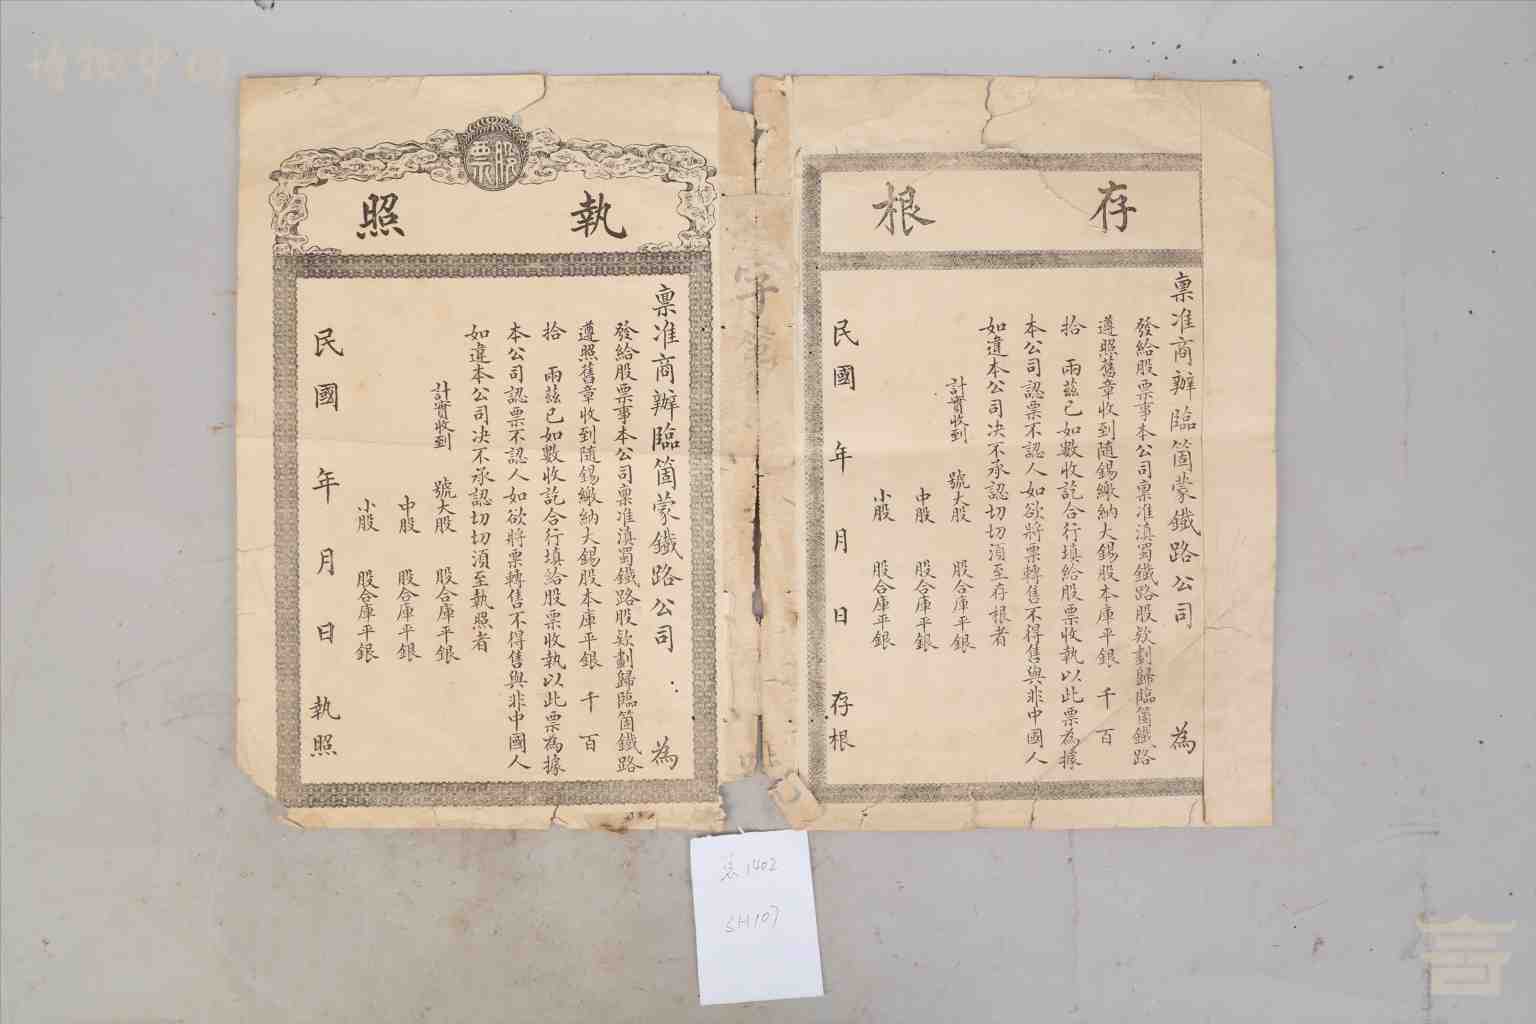 存根
稟准商辦臨箇蒙鐵路公司 為
發給股票事本公司稟准滇蜀鐵路股欵劃歸臨箇鐵路
遵照舊章收到隨錫繳納大錫股本庫平銀 千 百
拾 兩茲已如數收訖合行填給股票收執以此票為據
本公司認票不認人如欲將票轉售不得售與非中國人
如違本公司决不承認切切須至存根者
計實收到 號大股 股合庫平銀
中股 股合庫平銀
小股 股合庫平銀
民國 年 月 日 存根
字
股票
執照
稟准商辦臨箇蒙鐵路公司 為
發給股票事本公司稟准滇蜀鐵路股欵劃歸臨箇鐵路
遵照舊章收到隨錫繳納大錫股本庫平銀 千 百
拾 兩茲已如數收訖合行填給股票收執以此票為據
本公司認票不認人如欲將票轉售不得售與非中國人
如違本公司决不承認切切須至執照者
計實收到 號大股 股合庫平銀
中股 股合庫平銀
小股 股合庫平銀
民國 年 月 日 執照
1402
SH107